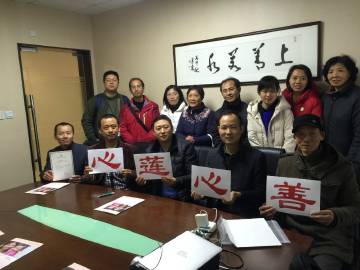 上善若水
心莲心善